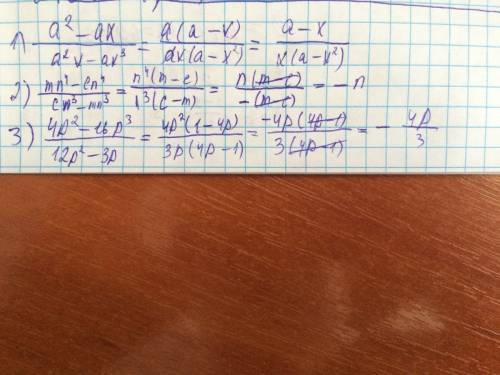 1) \frac{a^2 - ax}{a^2x - ax^3} = \frac{a(a-x)}{ax(a-x^2)} = \frac{a-x}{x(a-x^2)}
2) \frac{mn^4 - cn^4}{cn^3 - mn^3} = \frac{n^4(m-c)}{n^3(c-m)} = \frac{n(m-c)}{-(m-c)} = -n
3) \frac{4p^2 - 16p^3}{12p^2 - 3p} = \frac{4p^2(1-4p)}{3p(4p-1)} = \frac{-4p(4p-1)}{3(4p-1)} = -\frac{4p}{3}